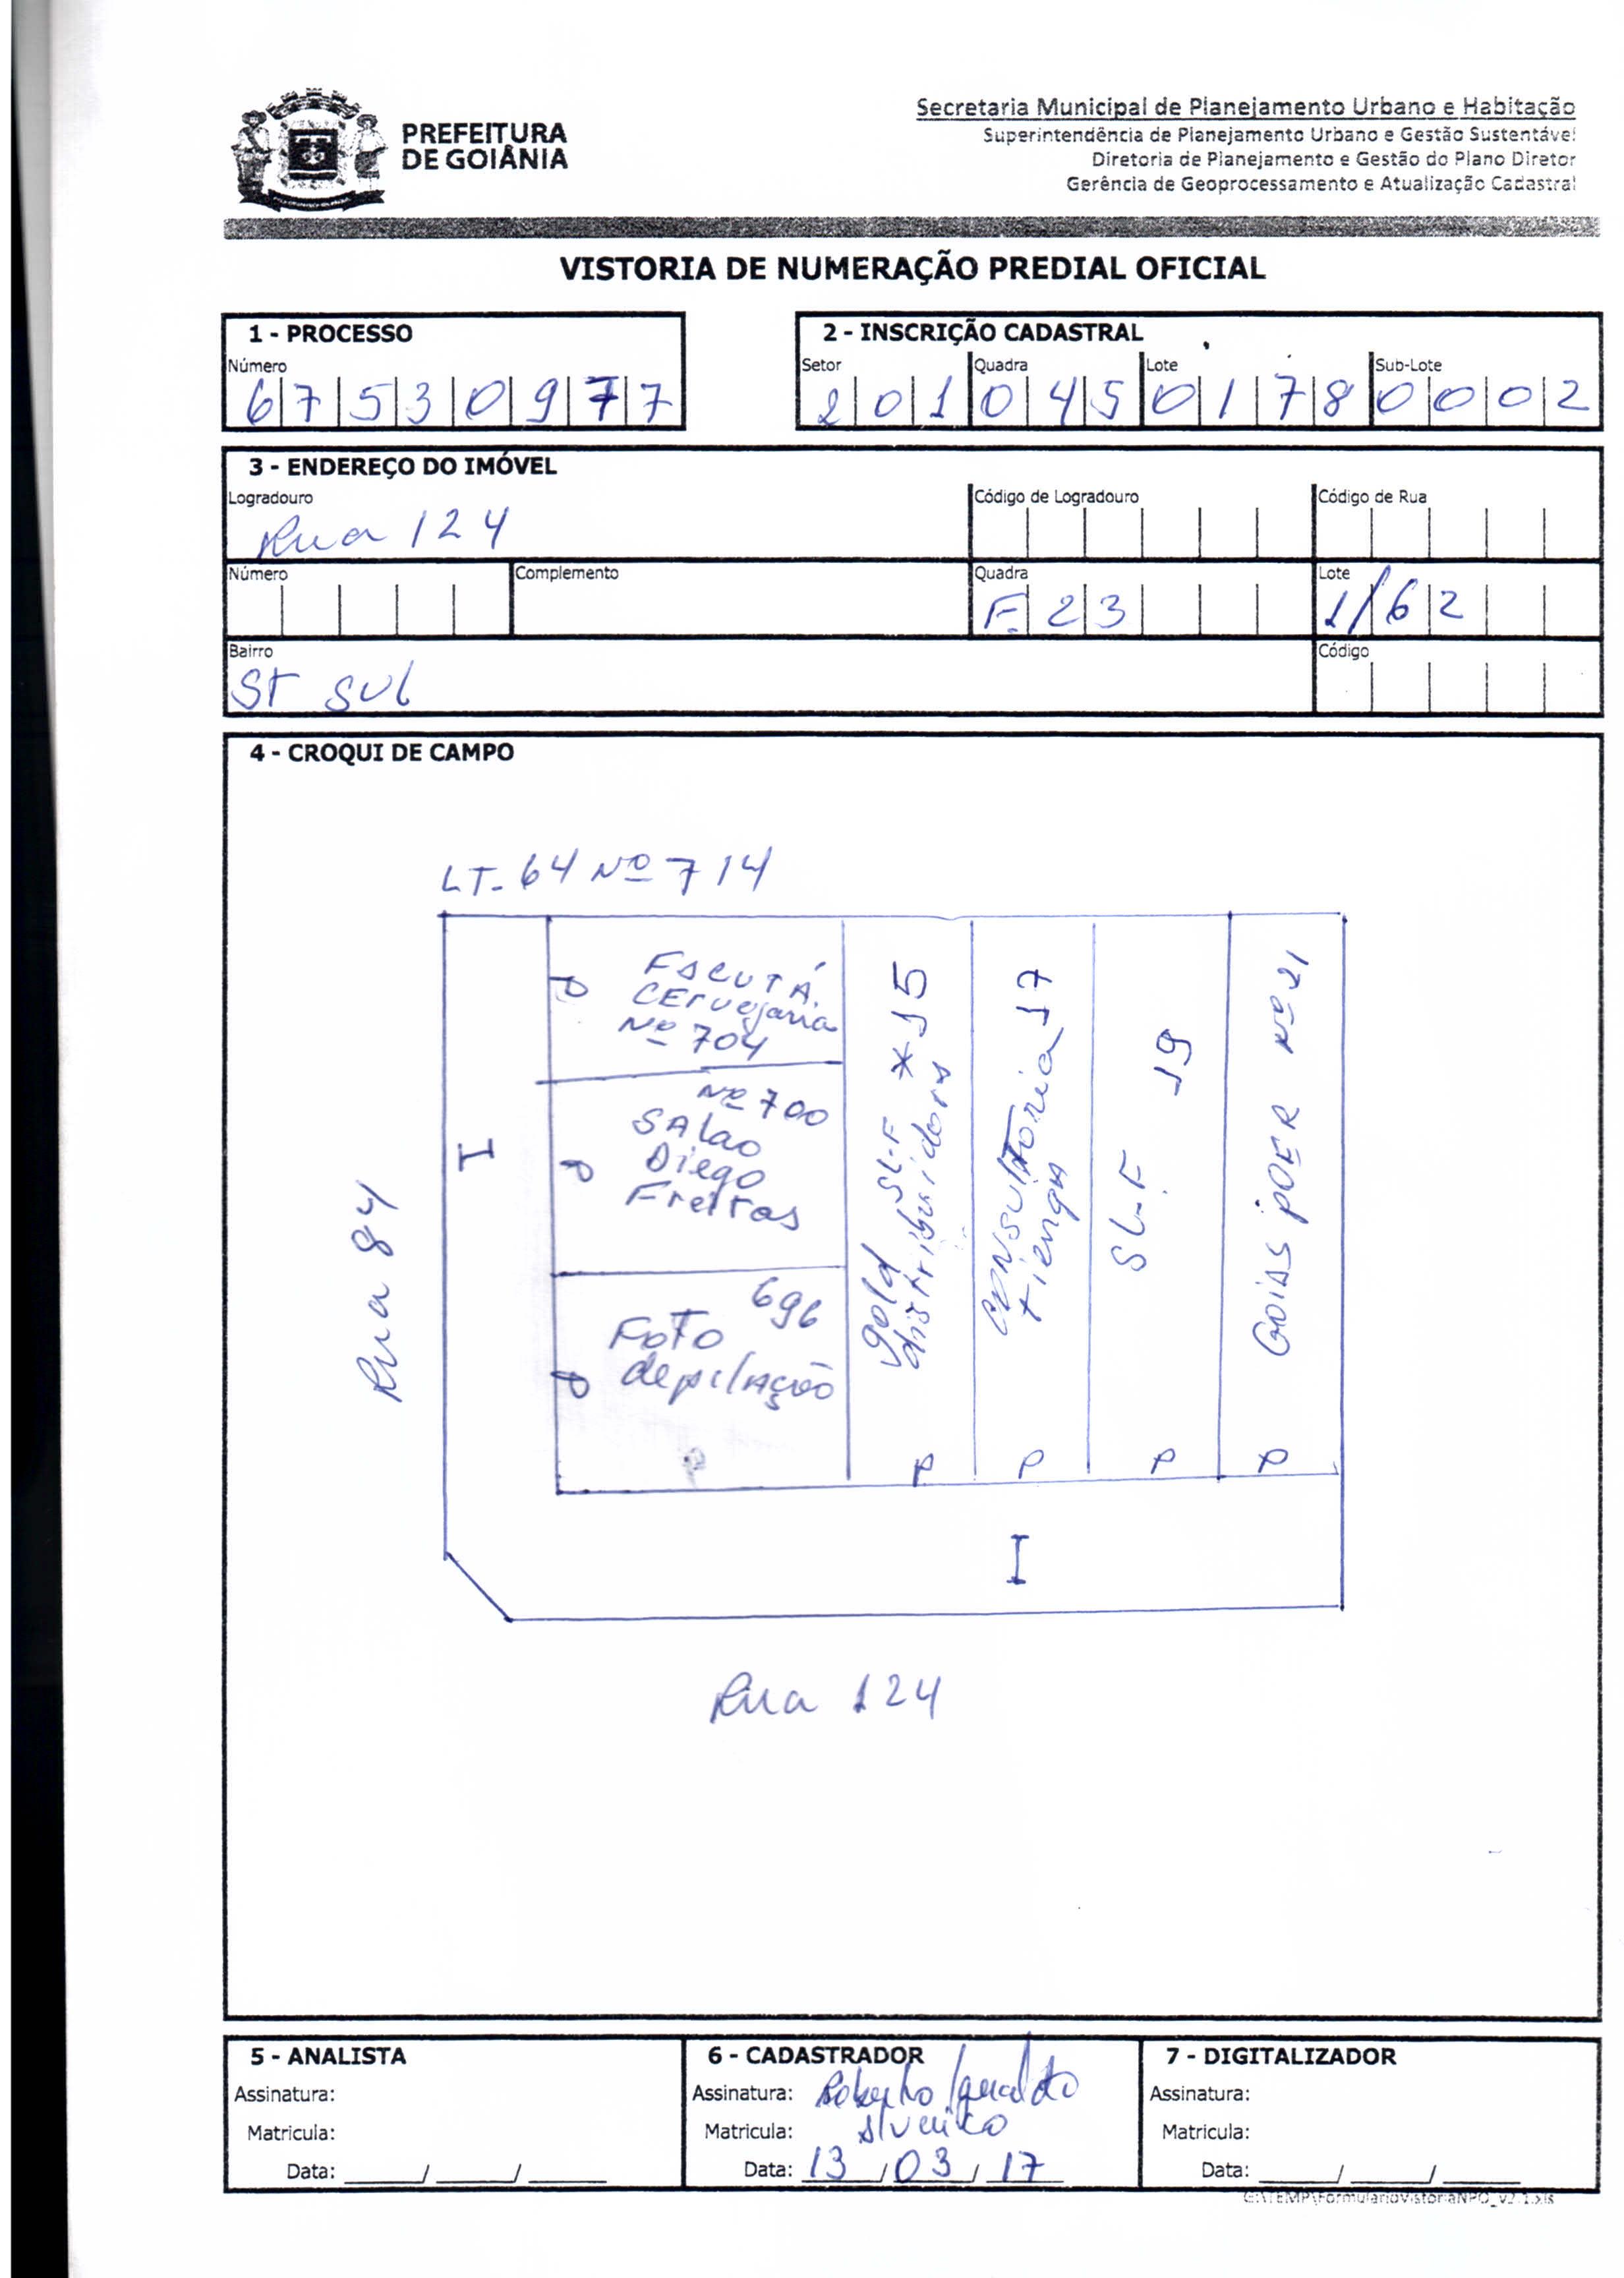 PREFEITURA
DE GOIÂNIA
Secretaria Municipal de Planejamento Urbano e Habitação
Superintendência de Planejamento Urbano e Gestão Sustentável
Diretoria de Planejamento e Gestão do Plano Diretor
Gerência de Geoprocessamento e Atualização Cadastral
VISTORIA DE NUMERAÇÃO PREDIAL OFICIAL
1 - PROCESSO
Número
67530977
2 - INSCRIÇÃO CADASTRAL
Setor Quadra Lote Sub-Lote
201 045 0178 0002
3 - ENDEREÇO DO IMÓVEL
Logradouro Código de Logradouro Código de Rua
Rua 124
Número Complemento Quadra Lote
F.23 1/62
Bairro Código
ST SUL
4 - CROQUI DE CAMPO
LT-64 Nº 714
P
ESCUTÁ
CErvejaria
Nº 704
Nº 700
SAlao
Diego
Freitas
P
696
Foto
depilação
P
P
SL-F * 15
gold
distribuidora
P
CONSULTORIA 17
P
SL-F 19
P
GOIAS Nº 21
P
I
I
Rua 84
Rua 124
5 - ANALISTA
Assinatura:
Matricula:
Data: ____/____/____
6 - CADASTRADOR
Assinatura: Roberto Geraldo
Matricula:
Data: 13/03/17
7 - DIGITALIZADOR
Assinatura:
Matricula:
Data: ____/____/____
G:\TEMP\FormularioVistoriaNPO_v2.1.xls